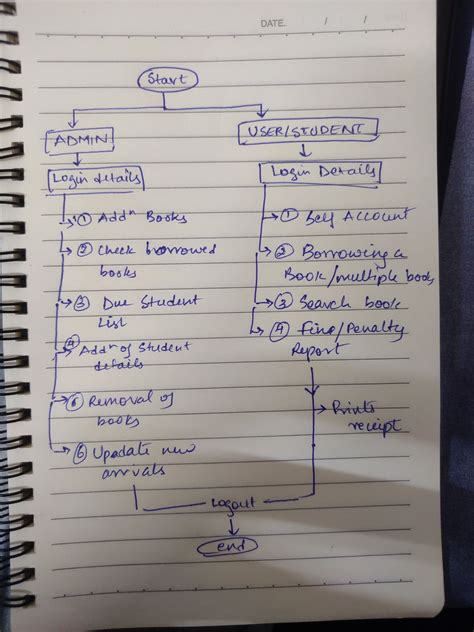 DATE.
Start
ADMIN
USER/STUDENT
Login details
Login Details
① Addⁿ Books
② Check borrowed
books
③ Due Student
List
④ Addⁿ of Student
details
⑥ Removal of
books
⑥ Upadate new
arrivals
① Self Account
② Borrowing a
Book/multiple books
③ Search book
④ Fine/Penalty
Report
Prints
receipt
Logout
end